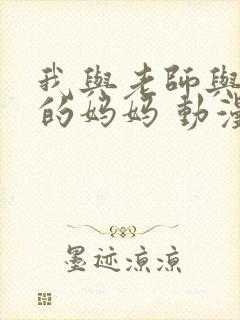 我與老師與
的妈妈 動漫
墨迹凉凉